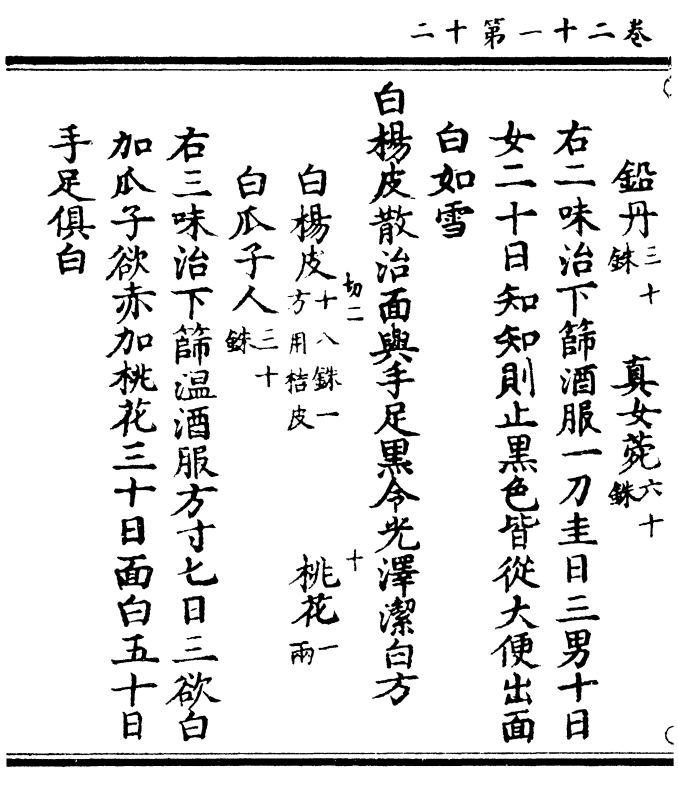 卷二十一第十二
鉛丹三十銖　真女菀六十銖
右二味治下篩酒服一刀圭日三男十日
女二十日知知則止黒色皆從大便出面
白如雪
白楊皮散治面與手足黒令光澤潔白方
白楊皮十八銖一方用秸皮　桃花一兩
切二
十
白瓜子人三十銖
右三味治下篩温酒服方寸七日三欲白
加瓜子欲赤加桃花三十日面白五十日
手足俱白